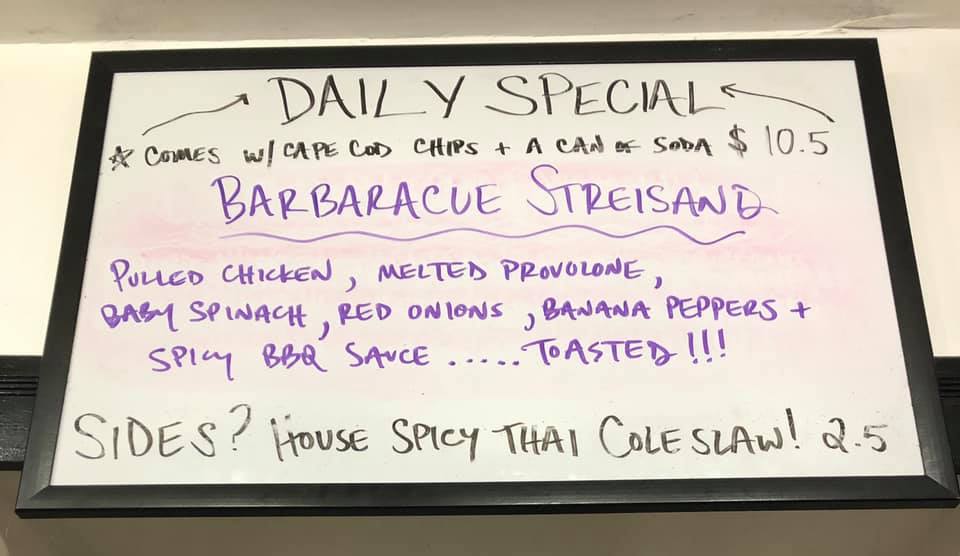 DAILY SPECIAL
☆ COMES W/ CAPE COD CHIPS + A CAN OF SODA $ 10.5
BARBARACUE STREISAND
PULLED CHICKEN, MELTED PROVOLONE,
BABY SPINACH, RED ONIONS, BANANA PEPPERS +
SPICY BBQ SAUCE ..... TOASTED!!!
SIDES? HOUSE SPICY THAI COLESLAW! 2.5